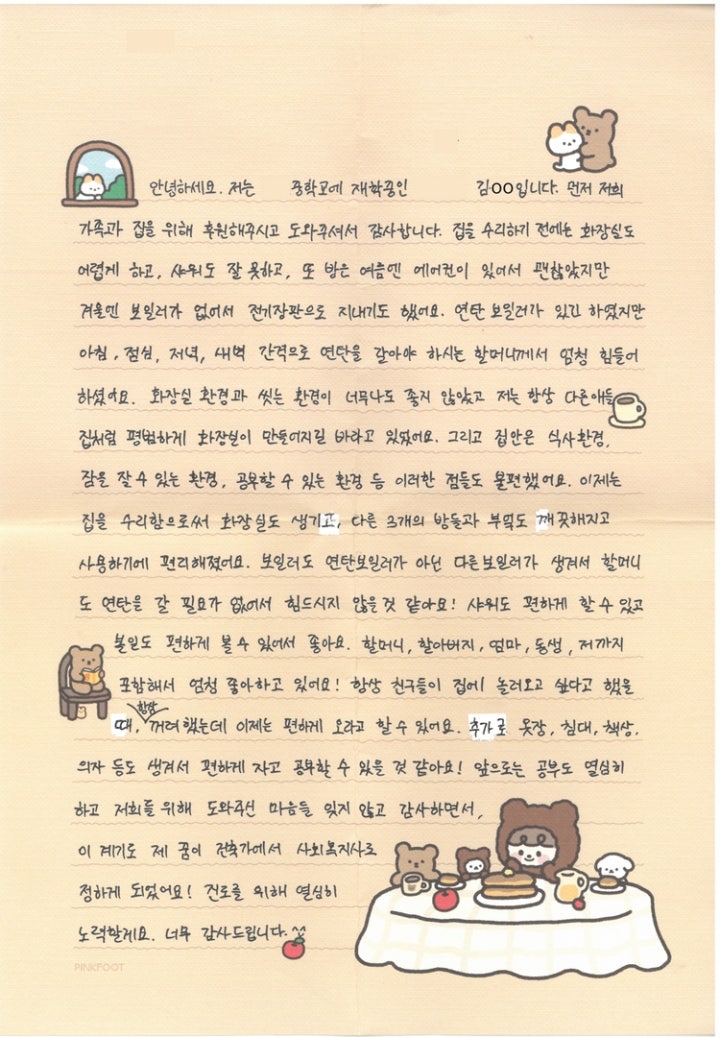 안녕하세요. 저는 중학교에 재학중인 김OO입니다. 먼저 저희
가족과 집을 위해 후원해주시고 도와주셔서 감사합니다. 집을 수리하기 전에는 화장실도
어렵게 하고, 샤워도 잘 못하고, 또 방은 여름엔 에어컨이 있어서 괜찮았지만
겨울엔 보일러가 없어서 전기장판으로 지내기도 했어요. 연탄 보일러가 있긴 하였지만
아침, 점심, 저녁, 새벽 간격으로 연탄을 갈아야 하시는 할머니께서 엄청 힘들어
하셨어요. 화장실 환경과 씻는 환경이 너무나도 좋지 않았고 저는 항상 다른애들
집처럼 평범하게 화장실이 만들어지길 바라고 있었어요. 그리고 집안은 식사환경,
잠을 잘 수 있는 환경, 공부할 수 있는 환경 등 이러한 점들도 불편했어요. 이제는
집을 수리함으로써 화장실도 생기고, 다른 3개의 방들과 부엌도 깨끗해지고
사용하기에 편리해졌어요. 보일러도 연탄보일러가 아닌 다른보일러가 생겨서 할머니
도 연탄을 갈 필요가 없어서 힘드시지 않을 것 같아요! 샤워도 편하게 할 수 있고
볼일도 편하게 볼 수 있어서 좋아요. 할머니, 할아버지, 엄마, 동생, 저까지
포함해서 엄청 좋아하고 있어요! 항상 친구들이 집에 놀러오고 싶다고 했을
때, 항상 꺼려했는데 이제는 편하게 오라고 할 수 있어요. 추가로 옷장, 침대, 책상.
의자 등도 생겨서 편하게 자고 공부할 수 있을 것 같아요! 앞으로는 공부도 열심히
하고 저희를 위해 도와주신 마음들 잊지 않고 감사하면서,
이 계기로 제 꿈이 건축가에서 사회복지사로
정하게 되었어요! 진로를 위해 열심히
노력할게요. 너무 감사드립니다.^^
PINKFOOT